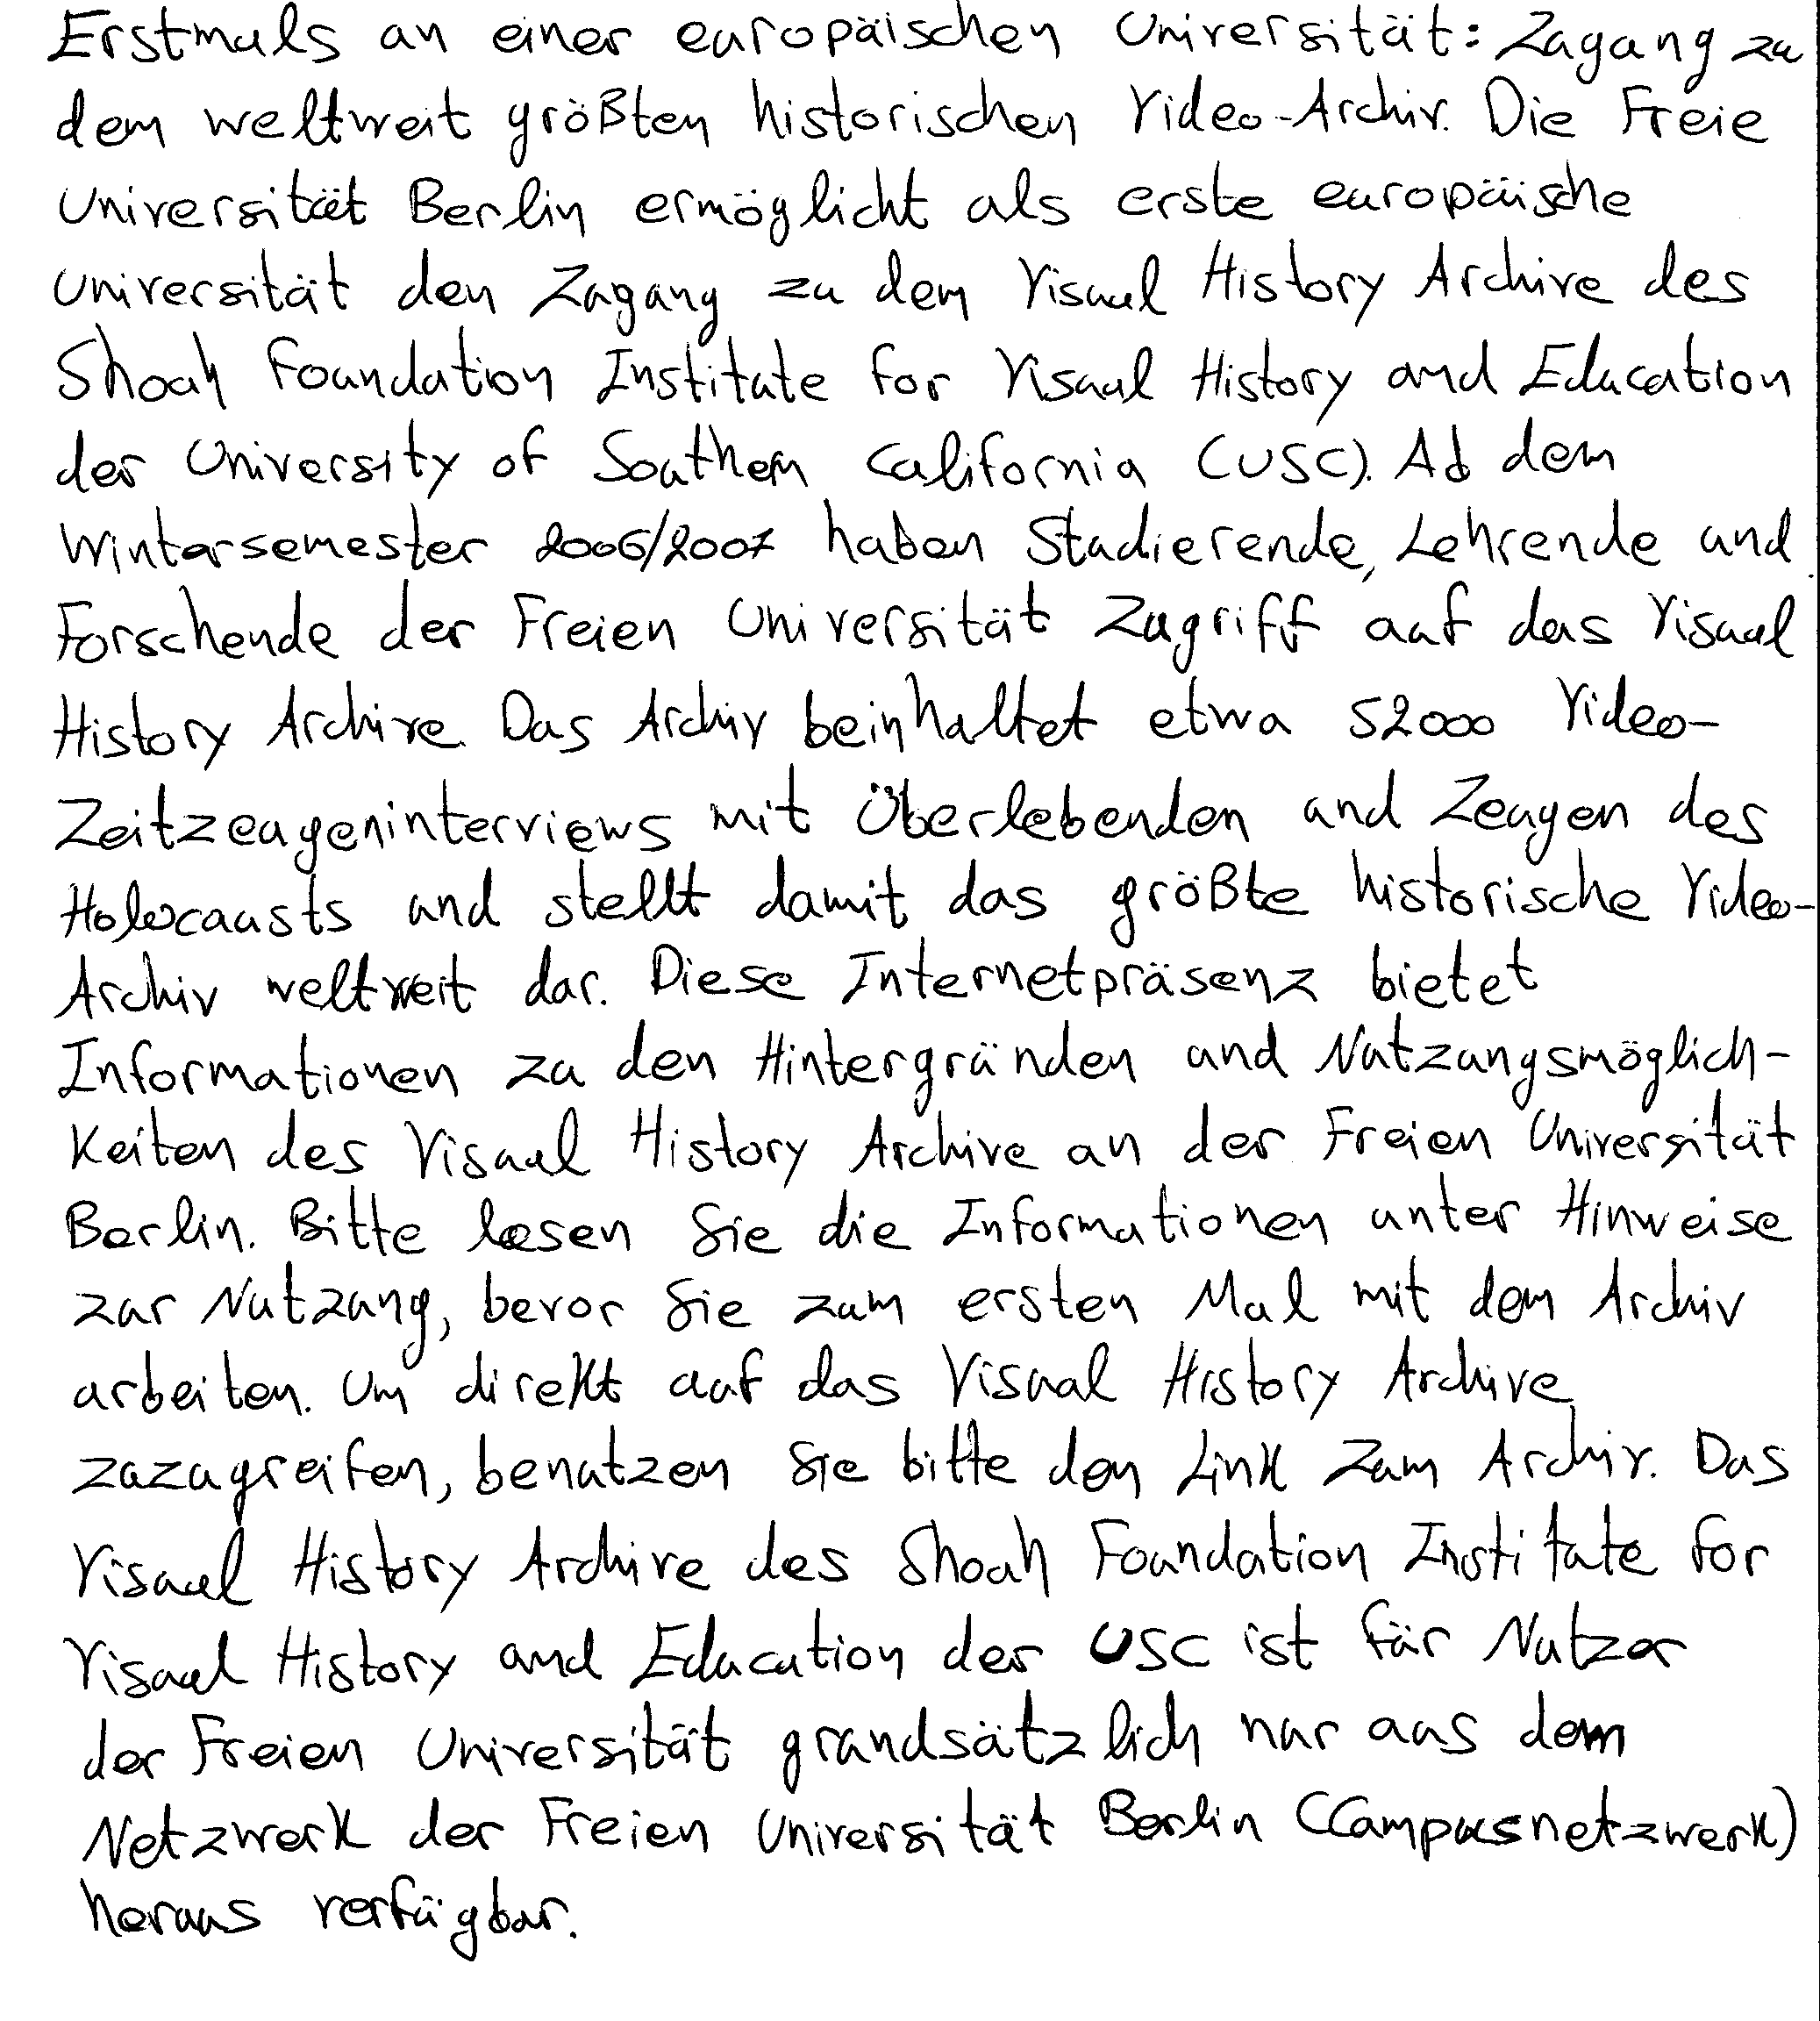 Erstmals an einer europäischen Universität: Zugang zu
dem weltweit größten historischen Video-Archiv. Die Freie
Universität Berlin ermöglicht als erste europäische
Universität den Zugang zu dem Visual History Archive des
Shoah Foundation Institute for Visual History and Education
der University of Southern California (USC). Ab dem
Wintersemester 2006/2007 haben Studierende, Lehrende und
Forschende der Freien Universität Zugriff auf das Visual
History Archive. Das Archiv beinhaltet etwa 52000 Video-
Zeitzeugeninterviews mit Überlebenden und Zeugen des
Holocausts und stellt damit das größte historische Video-
Archiv weltweit dar. Diese Internetpräsenz bietet
Informationen zu den Hintergründen und Nutzungsmöglich-
keiten des Visual History Archive an der Freien Universität
Berlin. Bitte lesen Sie die Informationen unter Hinweise
zur Nutzung, bevor Sie zum ersten Mal mit dem Archiv
arbeiten. Um direkt auf das Visual History Archive
zuzugreifen, benutzen Sie bitte den Link zum Archiv. Das
Visual History Archive des Shoah Foundation Institute for
Visual History and Education der USC ist für Nutzer
der Freien Universität grundsätzlich nur aus dem
Netzwerk der Freien Universität Berlin (Campusnetzwerk)
heraus verfügbar.